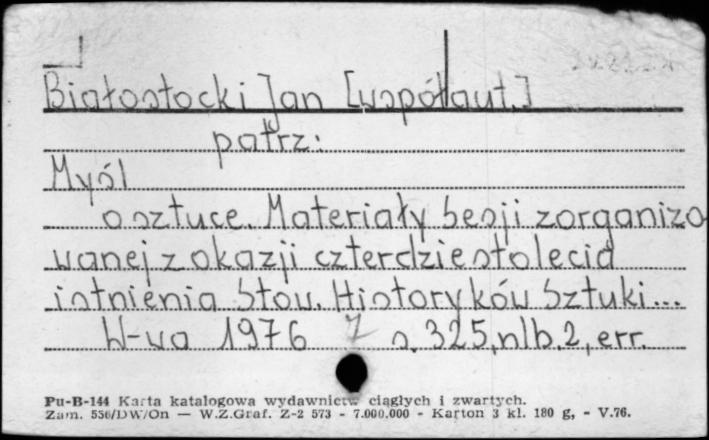 Białostocki Jan [współaut.]
patrz:
Myśl
o sztuce. Materiały Sesji zorganizo
wanej z okazji czterdziestolecia
istnienia Stow. Historyków Sztuki...
W-wa 1976 s. 325, nlb. 2, err.
Pu-B-144 Karta katalogowa wydawnictw ciągłych i zwartych.
Zam. 556/DW/On — W.Z.Graf. Z-2 573 - 7.000.000 - Karton 3 kl. 180 g, - V.76.